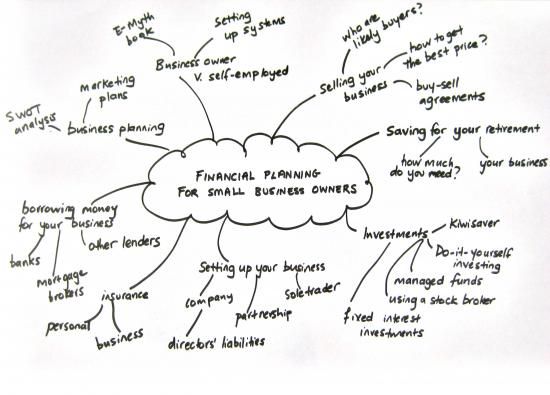 E-Myth
book
Setting
up systems
Business owner
v. self-employed
who are
likely buyers?
how to get
the best price?
Selling your
business
buy-sell
agreements
marketing
plans
SWOT
analysis
business planning
Saving for your retirement
how much
do you need?
your business
FINANCIAL PLANNING
FOR SMALL BUSINESS OWNERS
borrowing money
for your business
banks
mortgage
brokers
other lenders
insurance
personal
business
Setting up your business
company
directors' liabilities
partnership
sole trader
Investments
Kiwisaver
Do-it-yourself
investing
managed funds
using a stock broker
fixed interest
investments